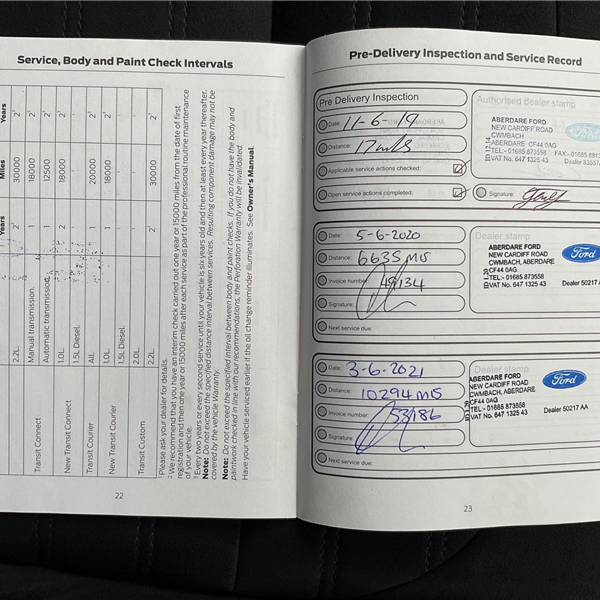 Service, Body and Paint Check Intervals
Years
Miles
Years
2.2L
2¹
300000
2¹
Transit Connect
Manual transmission.
1
18000
2¹
Automatic transmission.
1
12500
2¹
New Transit Connect
1.0L
2
18000
2¹
1.5L Diesel.
Transit Courier
All.
1
20000
2¹
New Transit Courier
1.0L
1
18000
2¹
1.5L Diesel.
Transit Custom
2.0L
2.2L
2²
30000
2¹
¹ Please ask your dealer for details.
² We recommend that you have an interim check carried out one year or 15000 miles from the date of first
registration and then one year or 15000 miles after each service as part of the professional routine maintenance
of your vehicle.
³ Every two years or every second service until your vehicle is six years old and then at least every year thereafter.
Note: Do not exceed the specified distance interval between services. Resulting component damage may not be
covered by the vehicle Warranty.
Note: Do not exceed the specified interval between body and paint checks. If you do not have the body and
paintwork checked in line with our recommendations, the Perforation Warranty will be invalidated.
Have your vehicle serviced earlier if the oil change reminder illuminates. See Owner's Manual.
22
Pre-Delivery Inspection and Service Record
Pre Delivery Inspection
Date: 11-6-19
Distance: 17 mls
Applicable service actions checked:
Open service actions completed:
Authorised dealer stamp
ABERDARE FORD
NEW CARDIFF ROAD
CWMBACH
ABERDARE CF44 0AG
TEL:- 01685 873558 FAX - 01685 881
VAT No. 647 1325 43 Dealer
Ford
Signature:
Date: 5-6-2020
Distance: 6635 MIS
Invoice number: 49134
Signature:
Next service due:
Dealer stamp
ABERDARE FORD
NEW CARDIFF ROAD
CWMBACH, ABERDARE
CF44 0AG
TEL:- 01685 873558
VAT No. 647 1325 43
Dealer 50217 AA
Ford
Date: 3-6-2021
Distance: 10294 MIS
Invoice number: 53186
Signature:
Next service due:
ABERDARE FORD
NEW CARDIFF ROAD
CWMBACH, ABERDARE
CF44 0AG
TEL:- 01685 873558
VAT No. 647 1325 43
Dealer 50217 AA
Ford
23